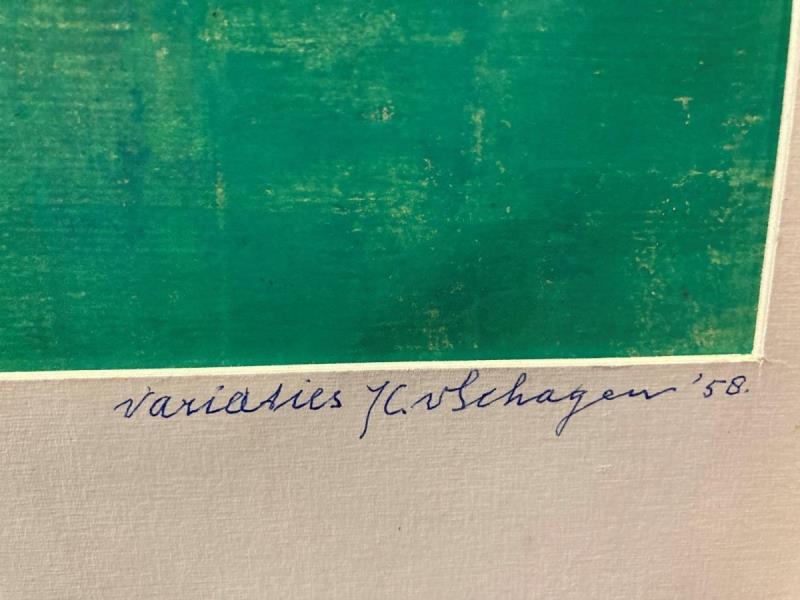 variaties JC.vSchagen '58.